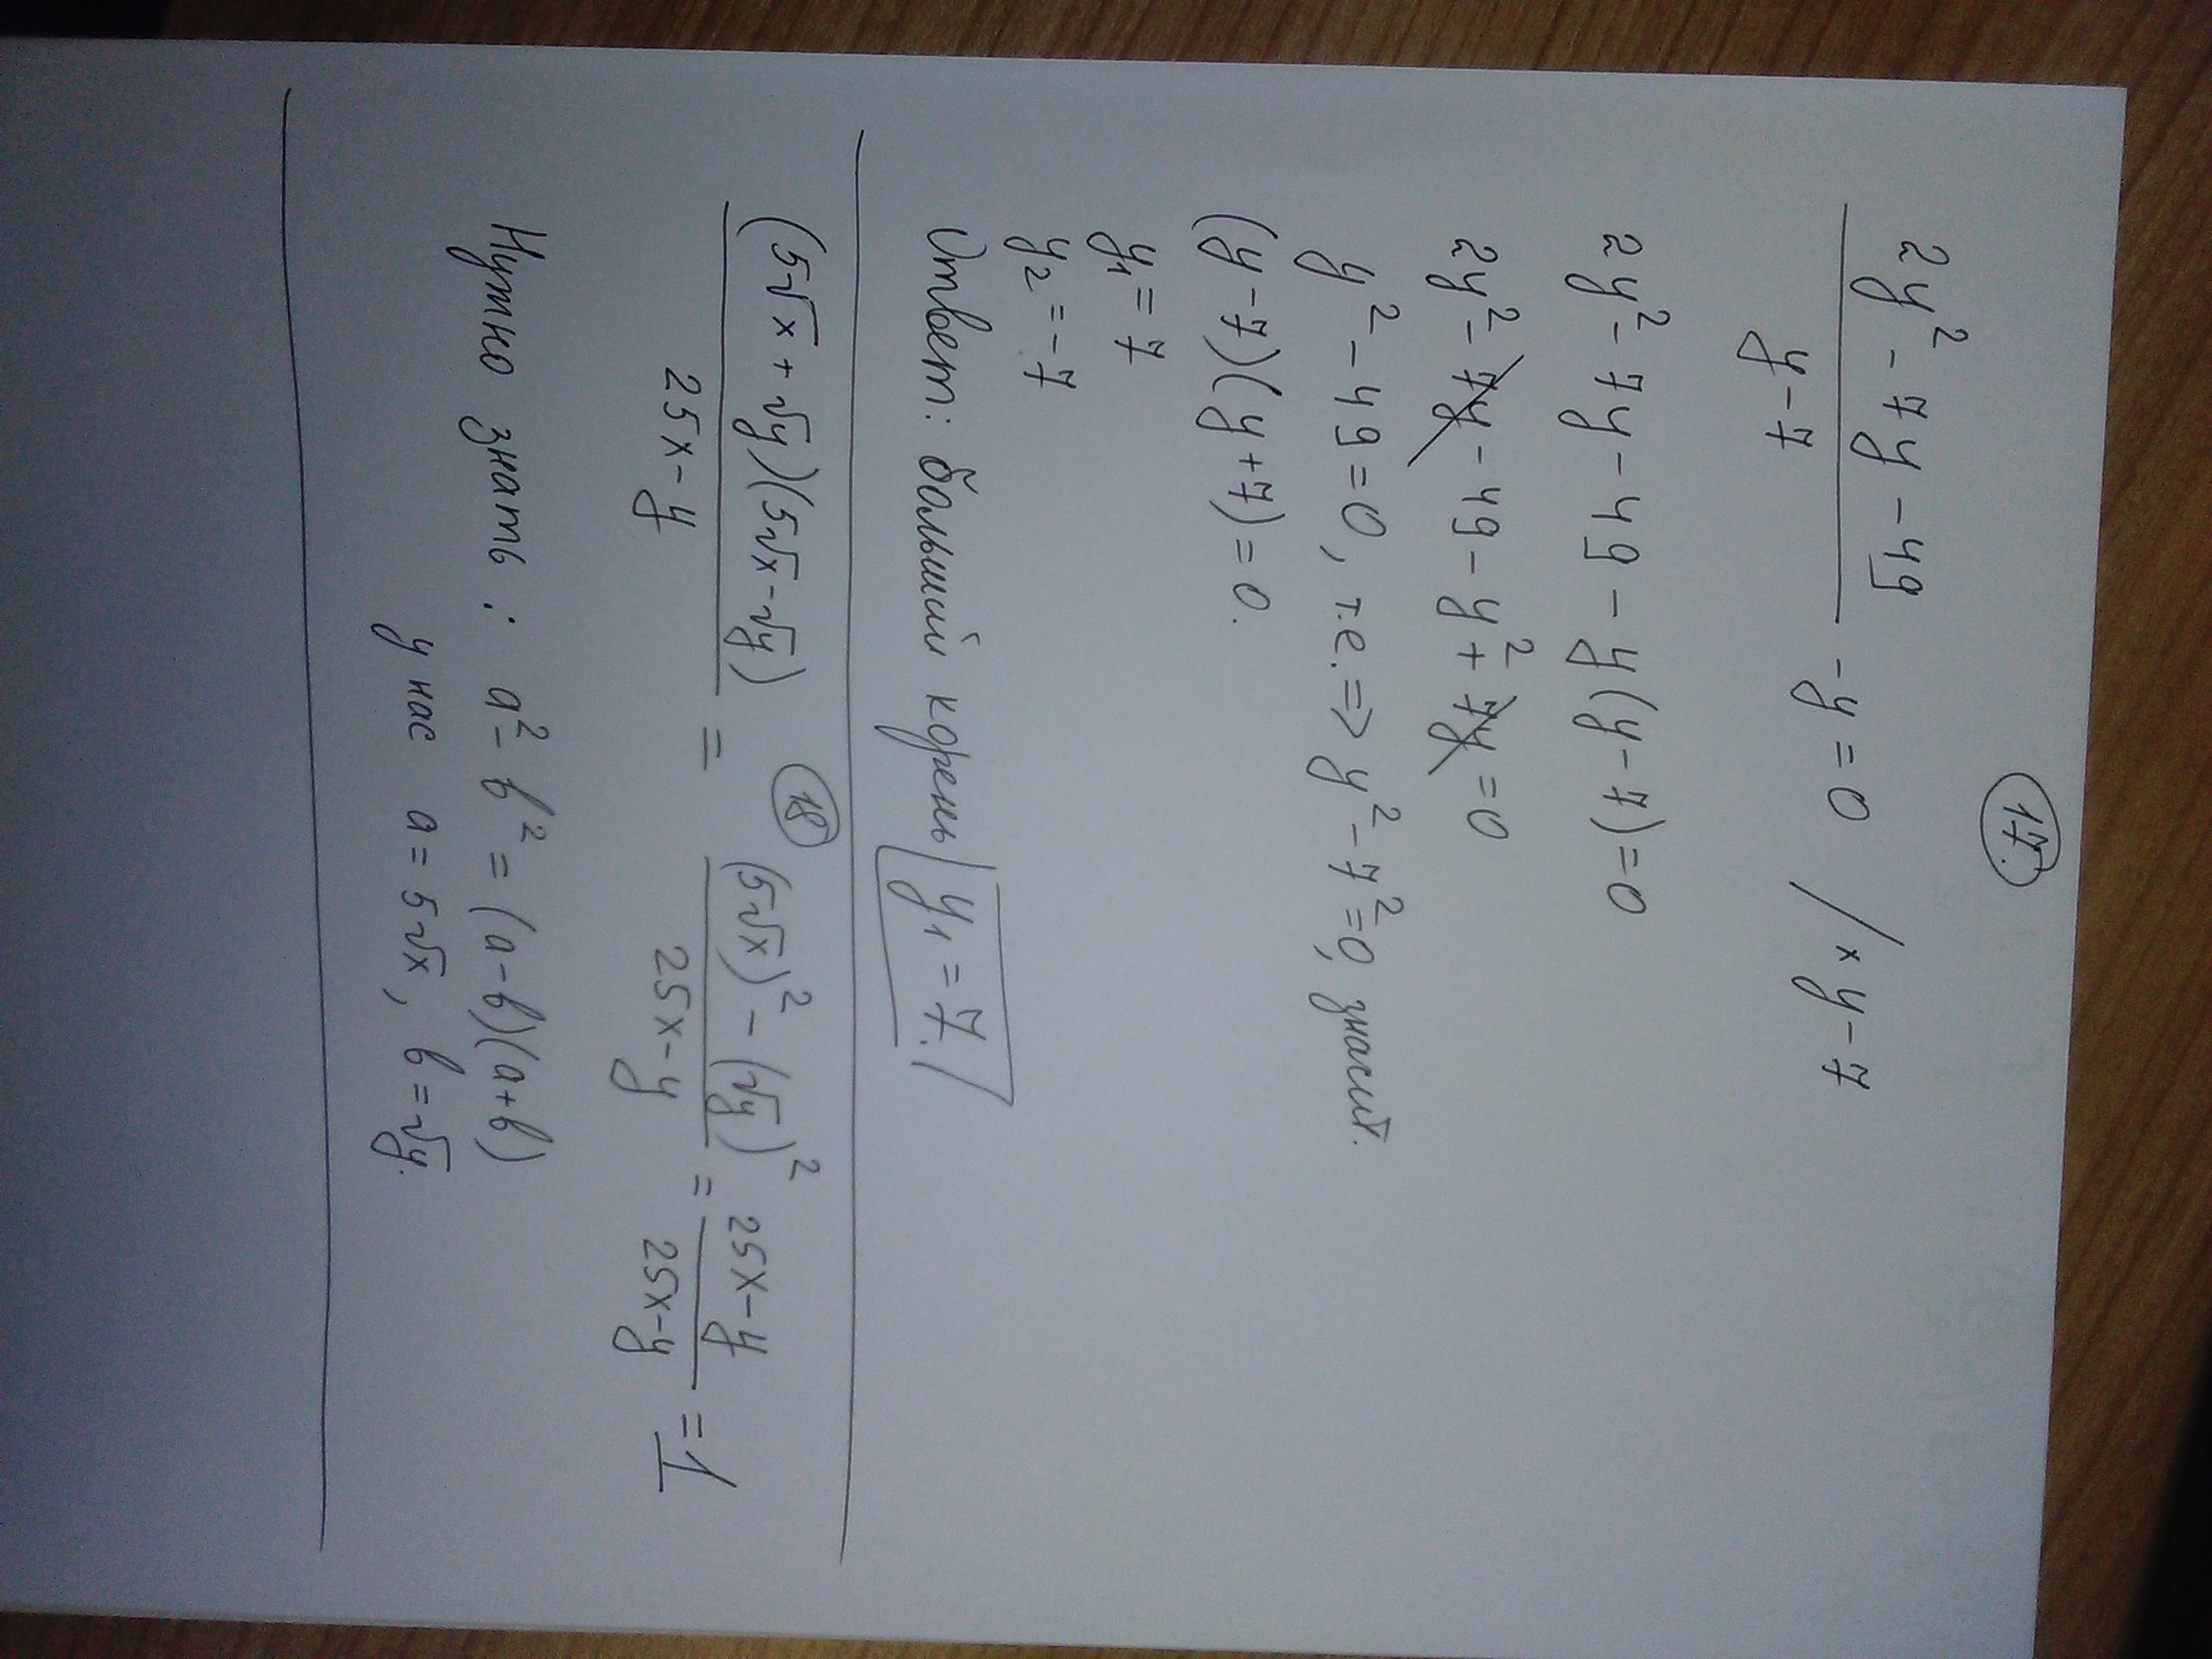 17.
2y² - 7y - 49
y - 7
- y = 0 / × y - 7
2y² - 7y - 49 - y(y - 7) = 0
2y² - 7y - 49 - y² + 7y = 0
y² - 49 = 0, т.е. => y² - 7² = 0, значит.
(y - 7)(y + 7) = 0.
y₁ = 7
y₂ = -7
Ответ: больший корень y₁ = 7.
18
(5√x + √y)(5√x - √y) / 25x - y = (5√x)² - (√y)² / 25x - y = 25x - y / 25x - y = 1
Нужно знать: a² - b² = (a - b)(a + b)
у нас a = 5√x, b = √y.